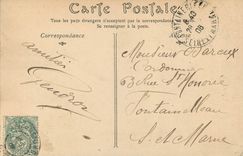 Carte Postale
Tous les pays étrangers n'acceptent pas la correspondance
Se renseigner à la poste
Correspondance
amitiés
Gendron
Monsieur Bareux
Cordonnier
63 Rue St Honoré
Fontainebleau
S. et Marne